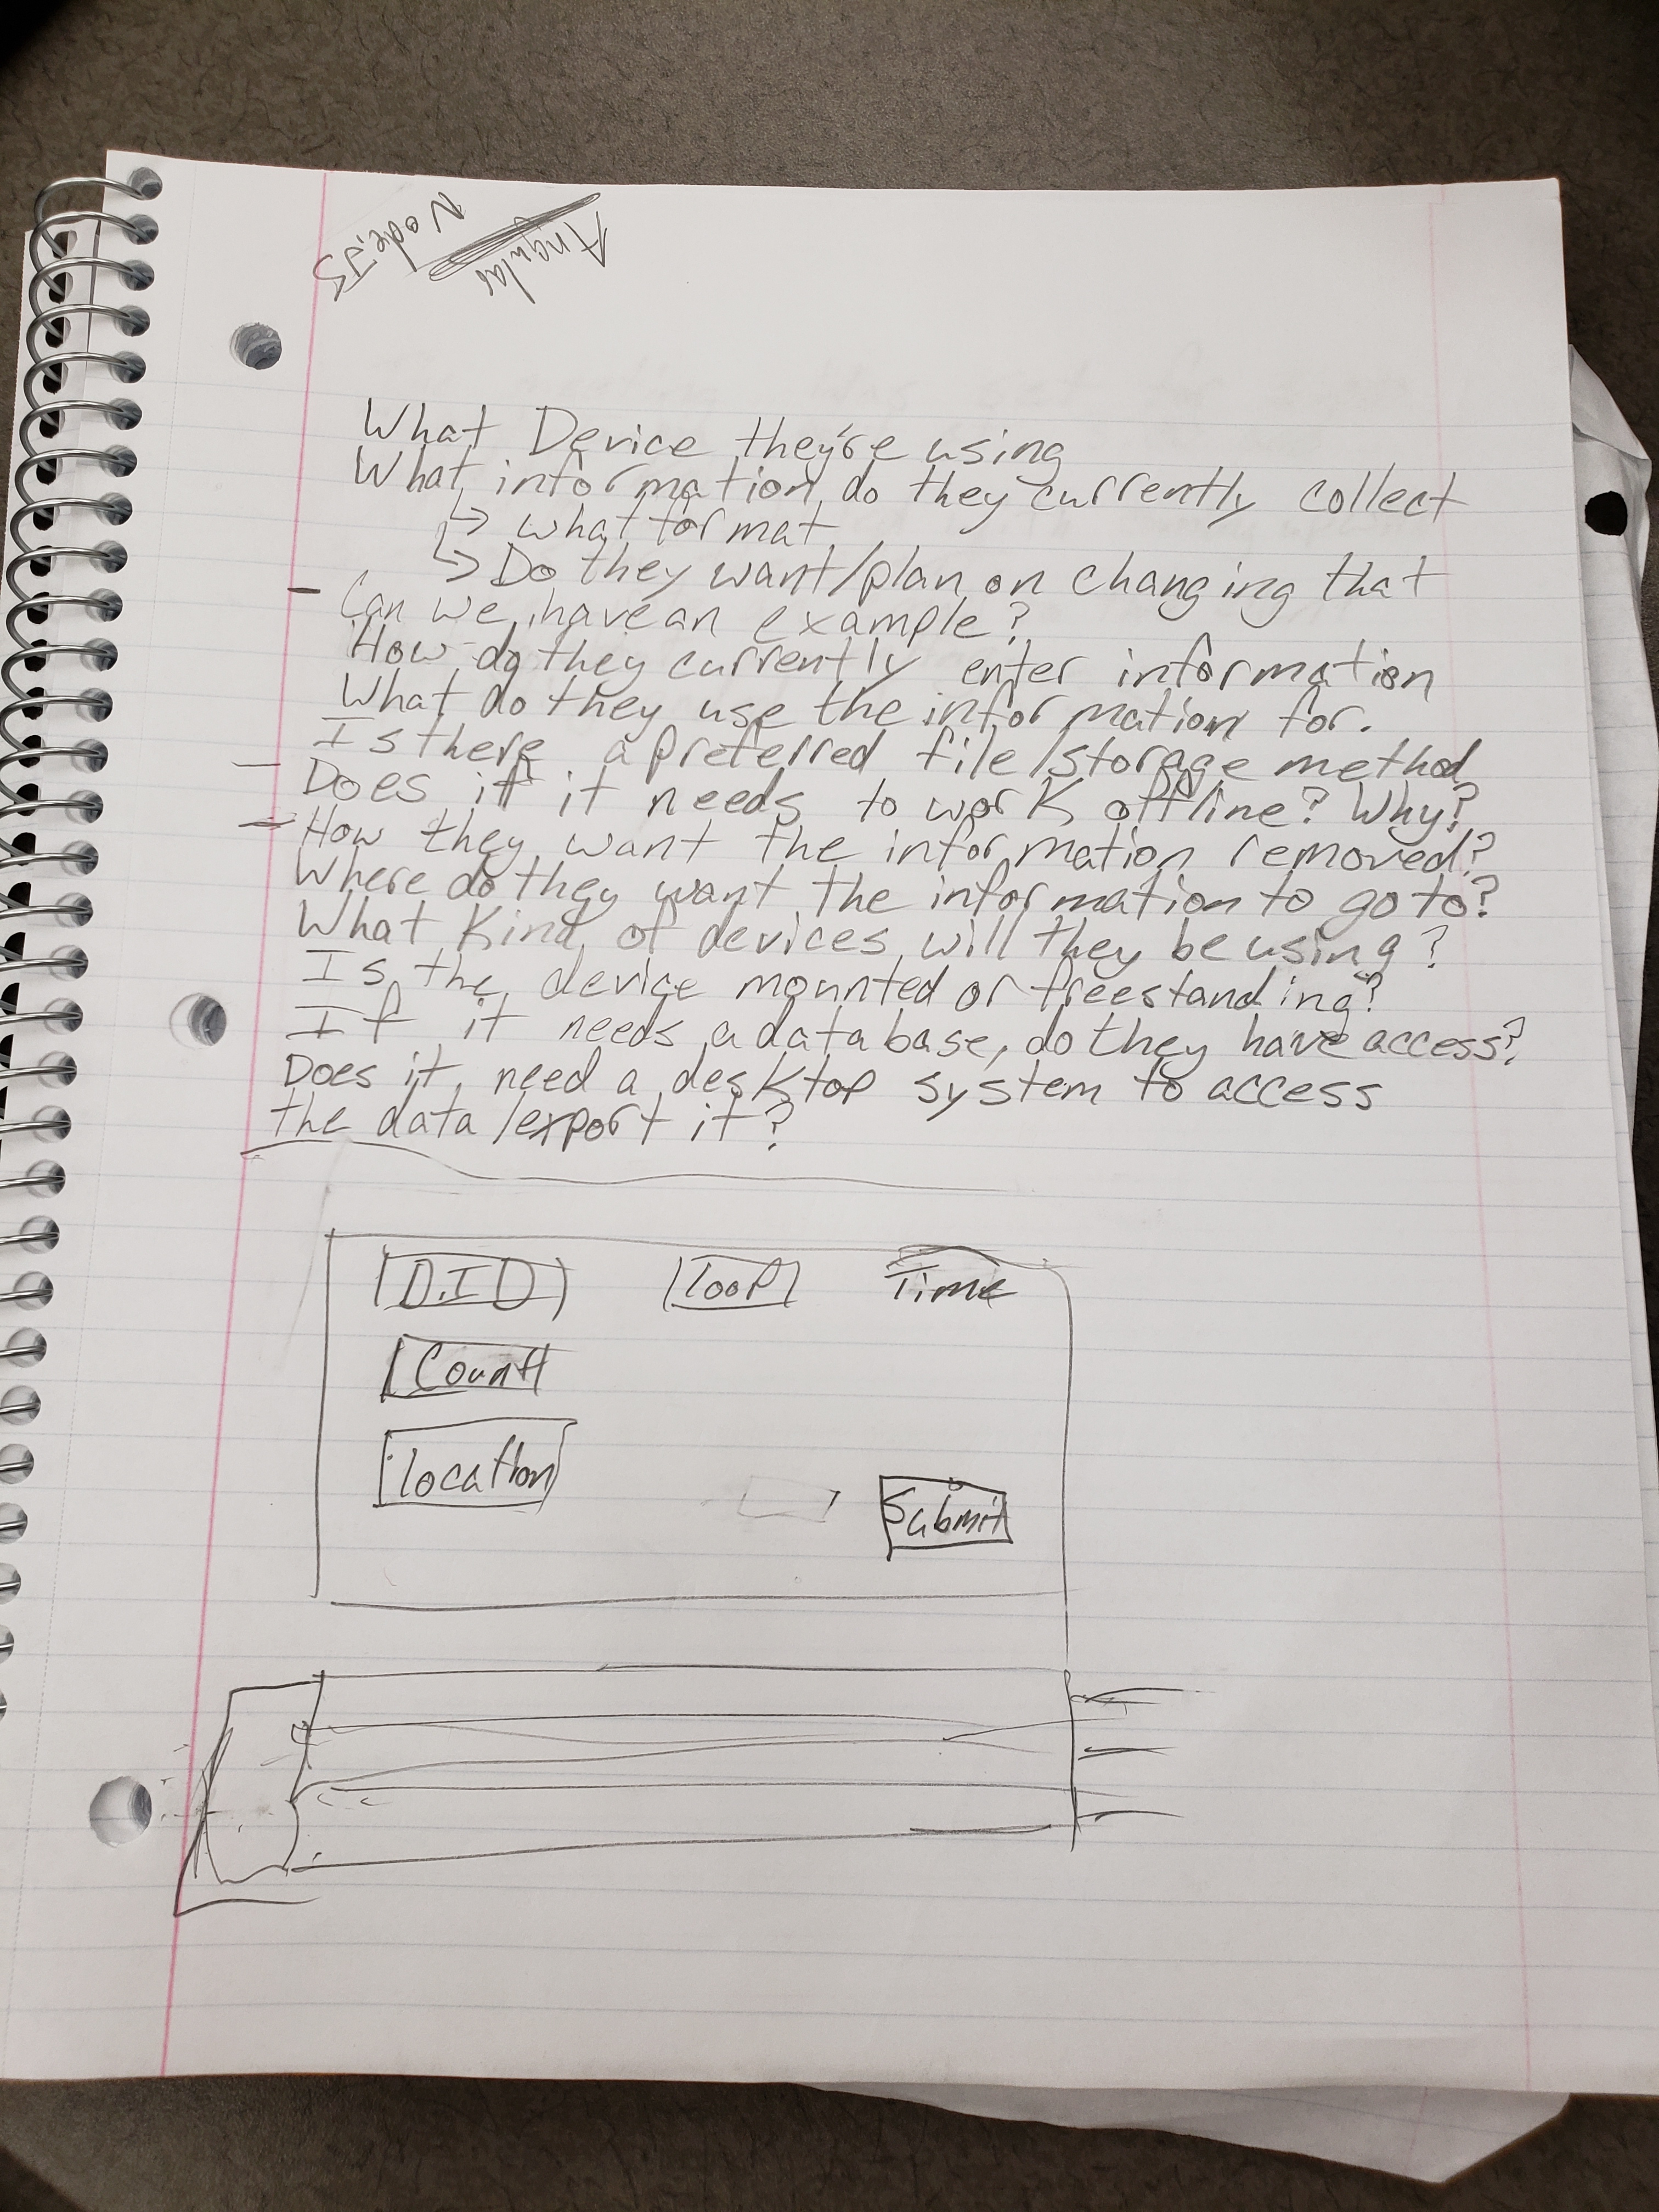 Node.JS
Angular
What Device they're using
What information do they currently collect
↳ what format
↳ Do they want/plan on changing that
- Can we have an example?
How do they currently enter information
What do they use the information for.
Is there a preferred file/storage method
- Does it it needs to work offline? Why?
- How they want the information removed?
Where do they want the information to go to?
What kind of devices will they be using?
Is the device mounted or freestanding?
If it needs a database, do they have access?
Does it need a desktop system to access
the data/export it?
D.I.D Time
Count
location
Submit